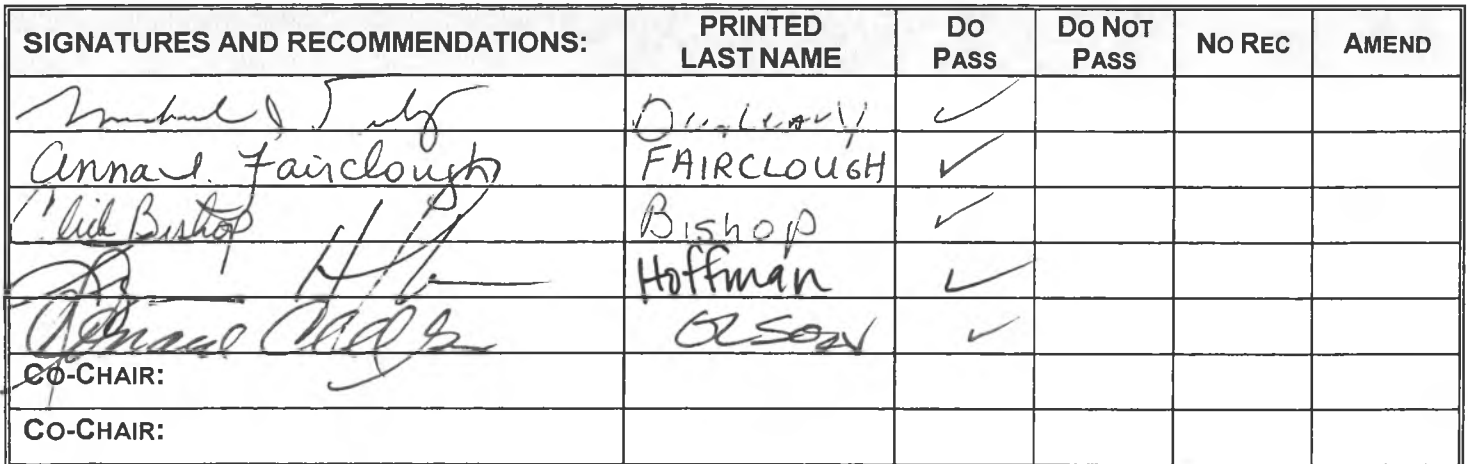 SIGNATURES AND RECOMMENDATIONS: PRINTED LAST NAME DO PASS DO NOT PASS NO REC AMEND
Dunleavy ✓
Anna I. Fairclough FAIRCLOUGH ✓
Click Bishop Bishop ✓
Hoffman ✓
OLSON ✓
CO-CHAIR:
CO-CHAIR: